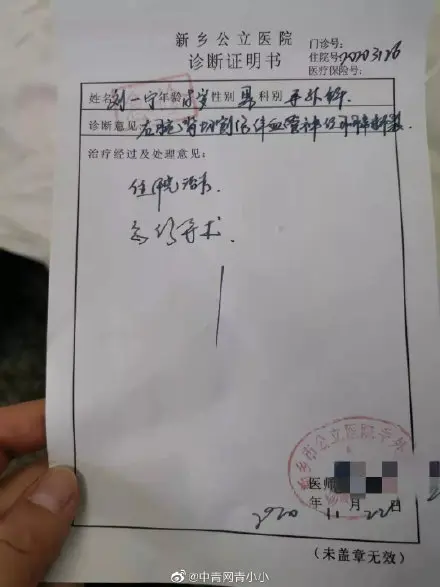 新乡公立医院
诊断证明书
门诊号:
住院号:20203126
医疗保险号:
姓名 刘一宁 年龄 岁 性别 男 科别 手外科
诊断意见 左腕背切割伤伴血管神经
治疗经过及处理意见:
住院治疗
急行手术
新乡市公立医院手外
医师
2020年11月22日
(未盖章无效)
@中青网青小小